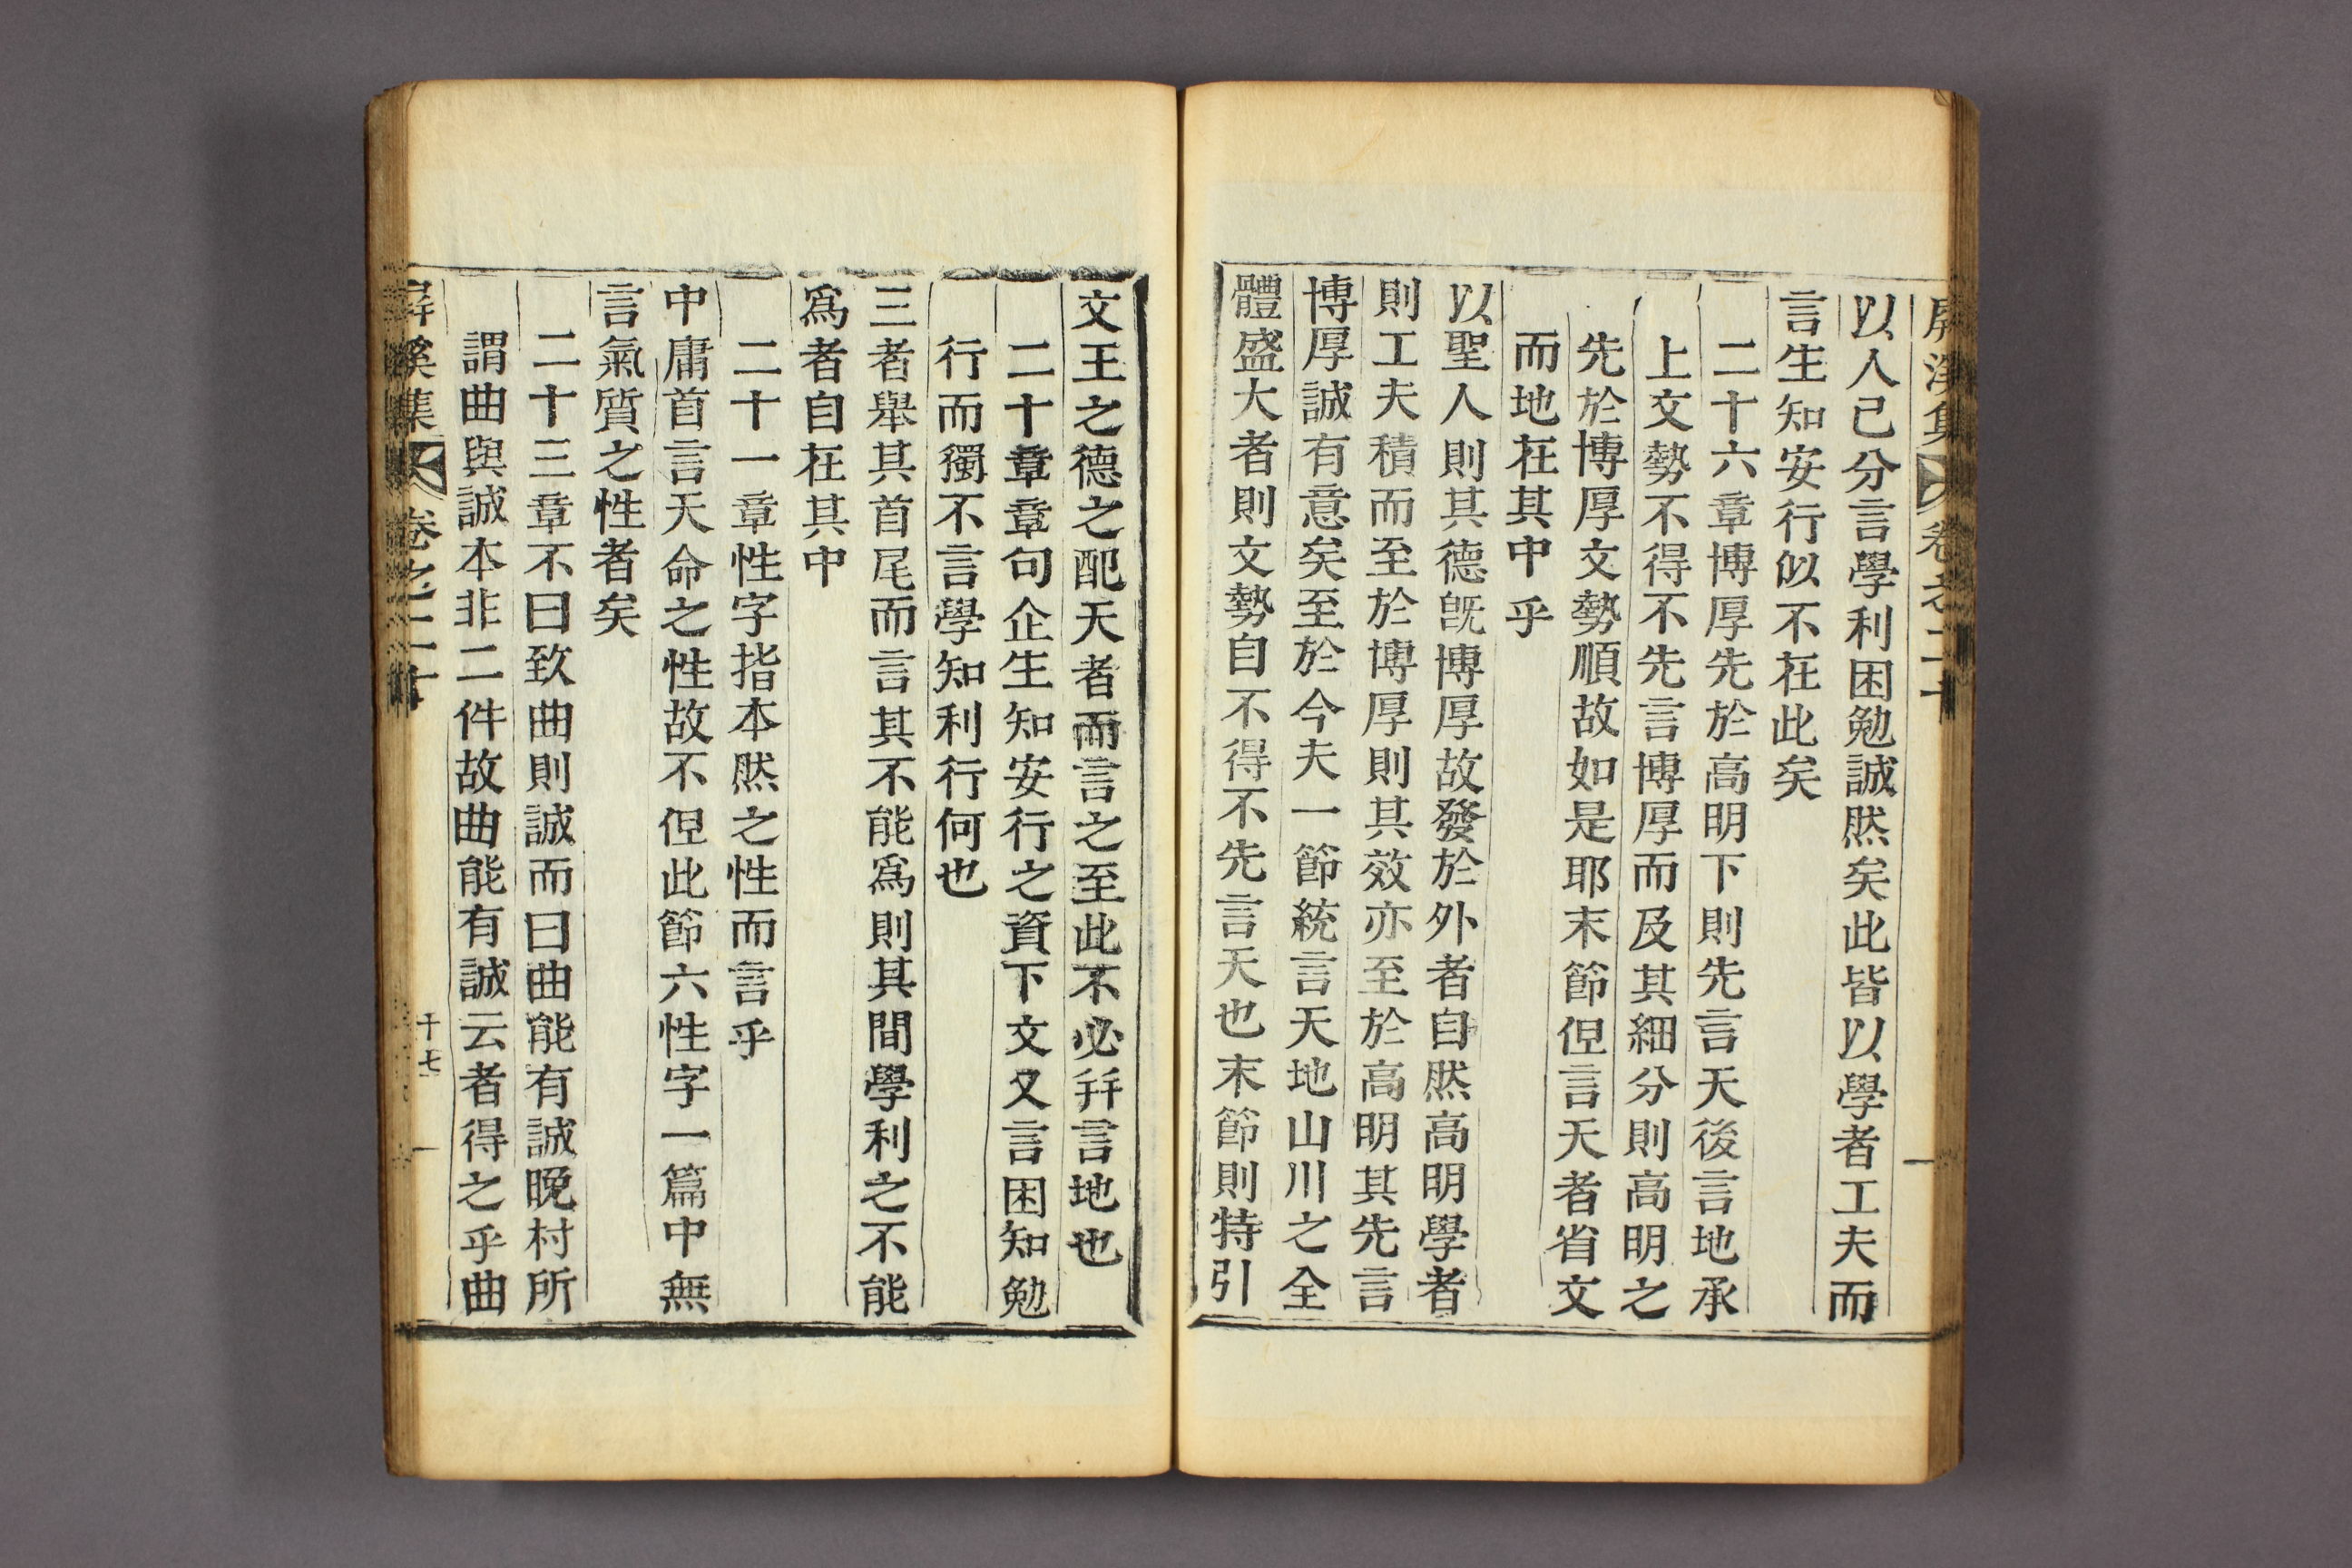 屏溪集 卷之二十
以人己分言學利困勉誠然矣此皆以學者工夫而
言生知安行似不在此矣
二十六章博厚先於高明下則先言天後言地承
上文勢不得不先言博厚而及其細分則高明之
先於博厚文勢順故如是耶末節但言天者省文
而地在其中乎
以聖人則其德旣博厚故發於外者自然高明學者
則工夫積而至於博厚則其效亦至於高明其先言
博厚誠有意矣至於今夫一節統言天地山川之全
體盛大者則文勢自不得不先言天也末節則特引
文王之德之配天者而言之至此不必幷言地也
二十章章句企生知安行之資下文又言困知勉
行而獨不言學知利行何也
三者舉其首尾而言其不能爲則其間學利之不能
爲者自在其中
二十一章性字指本然之性而言乎
中庸首言天命之性故不但此節六性字一篇中無
言氣質之性者矣
二十三章不曰致曲則誠而曰曲能有誠晩村所
謂曲與誠本非二件故曲能有誠云者得之乎曲
屏溪集 卷之二十
十七